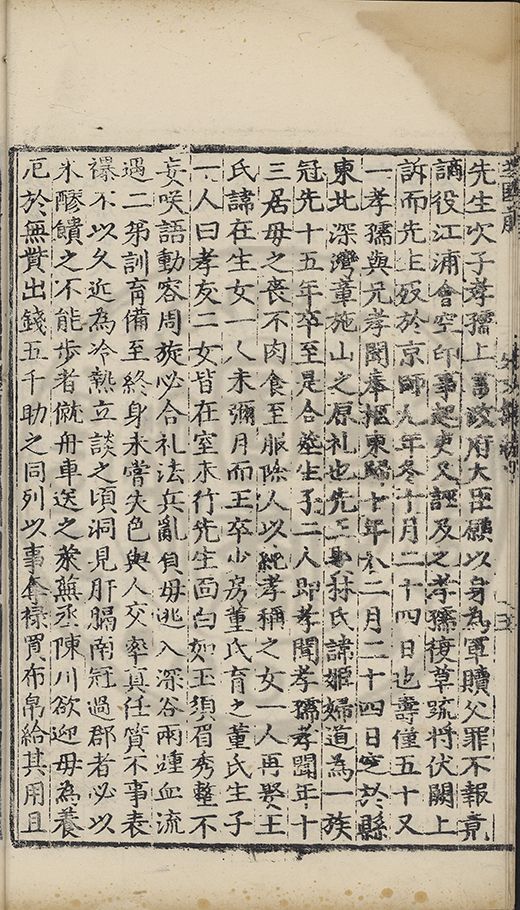 先生次子孝孺上書政府大臣願以身為軍贖父罪不報竟
謫役江浦會空印事起吏又誣及之孝孺復草疏將伏闕上
訴而先生歿於京師九年冬十月二十四日也壽僅五十又
一孝孺與兄孝聞奉柩東歸十年二月二十四日於縣
東北深灣童施山之原礼也先娶林氏諱姬婦道為一族
冠先十五年卒至是合塟生子二人即孝聞孝孺孝聞年十
三居母之喪不肉食至服除人以純孝稱之女一人再娶王
氏諱在生女一人未彌月而王卒少房董氏育之董氏生子
一人曰孝友二女皆在室未行先生面白如玉須眉秀整不
妄咲語動容周旋必合礼法兵亂負母逃入深谷兩踵血流
遇二弟訓育備至終身未嘗失色與人交率真任質不事表
襮不以久近為冷熱立談之頃洞見肝膈南冠過郡者必以
米醪饋之不能步者僦舟車送之萊蕪丞陳川欲迎母為養
厄於無貲出錢五千助之同列以事奪祿買布帛給其用且